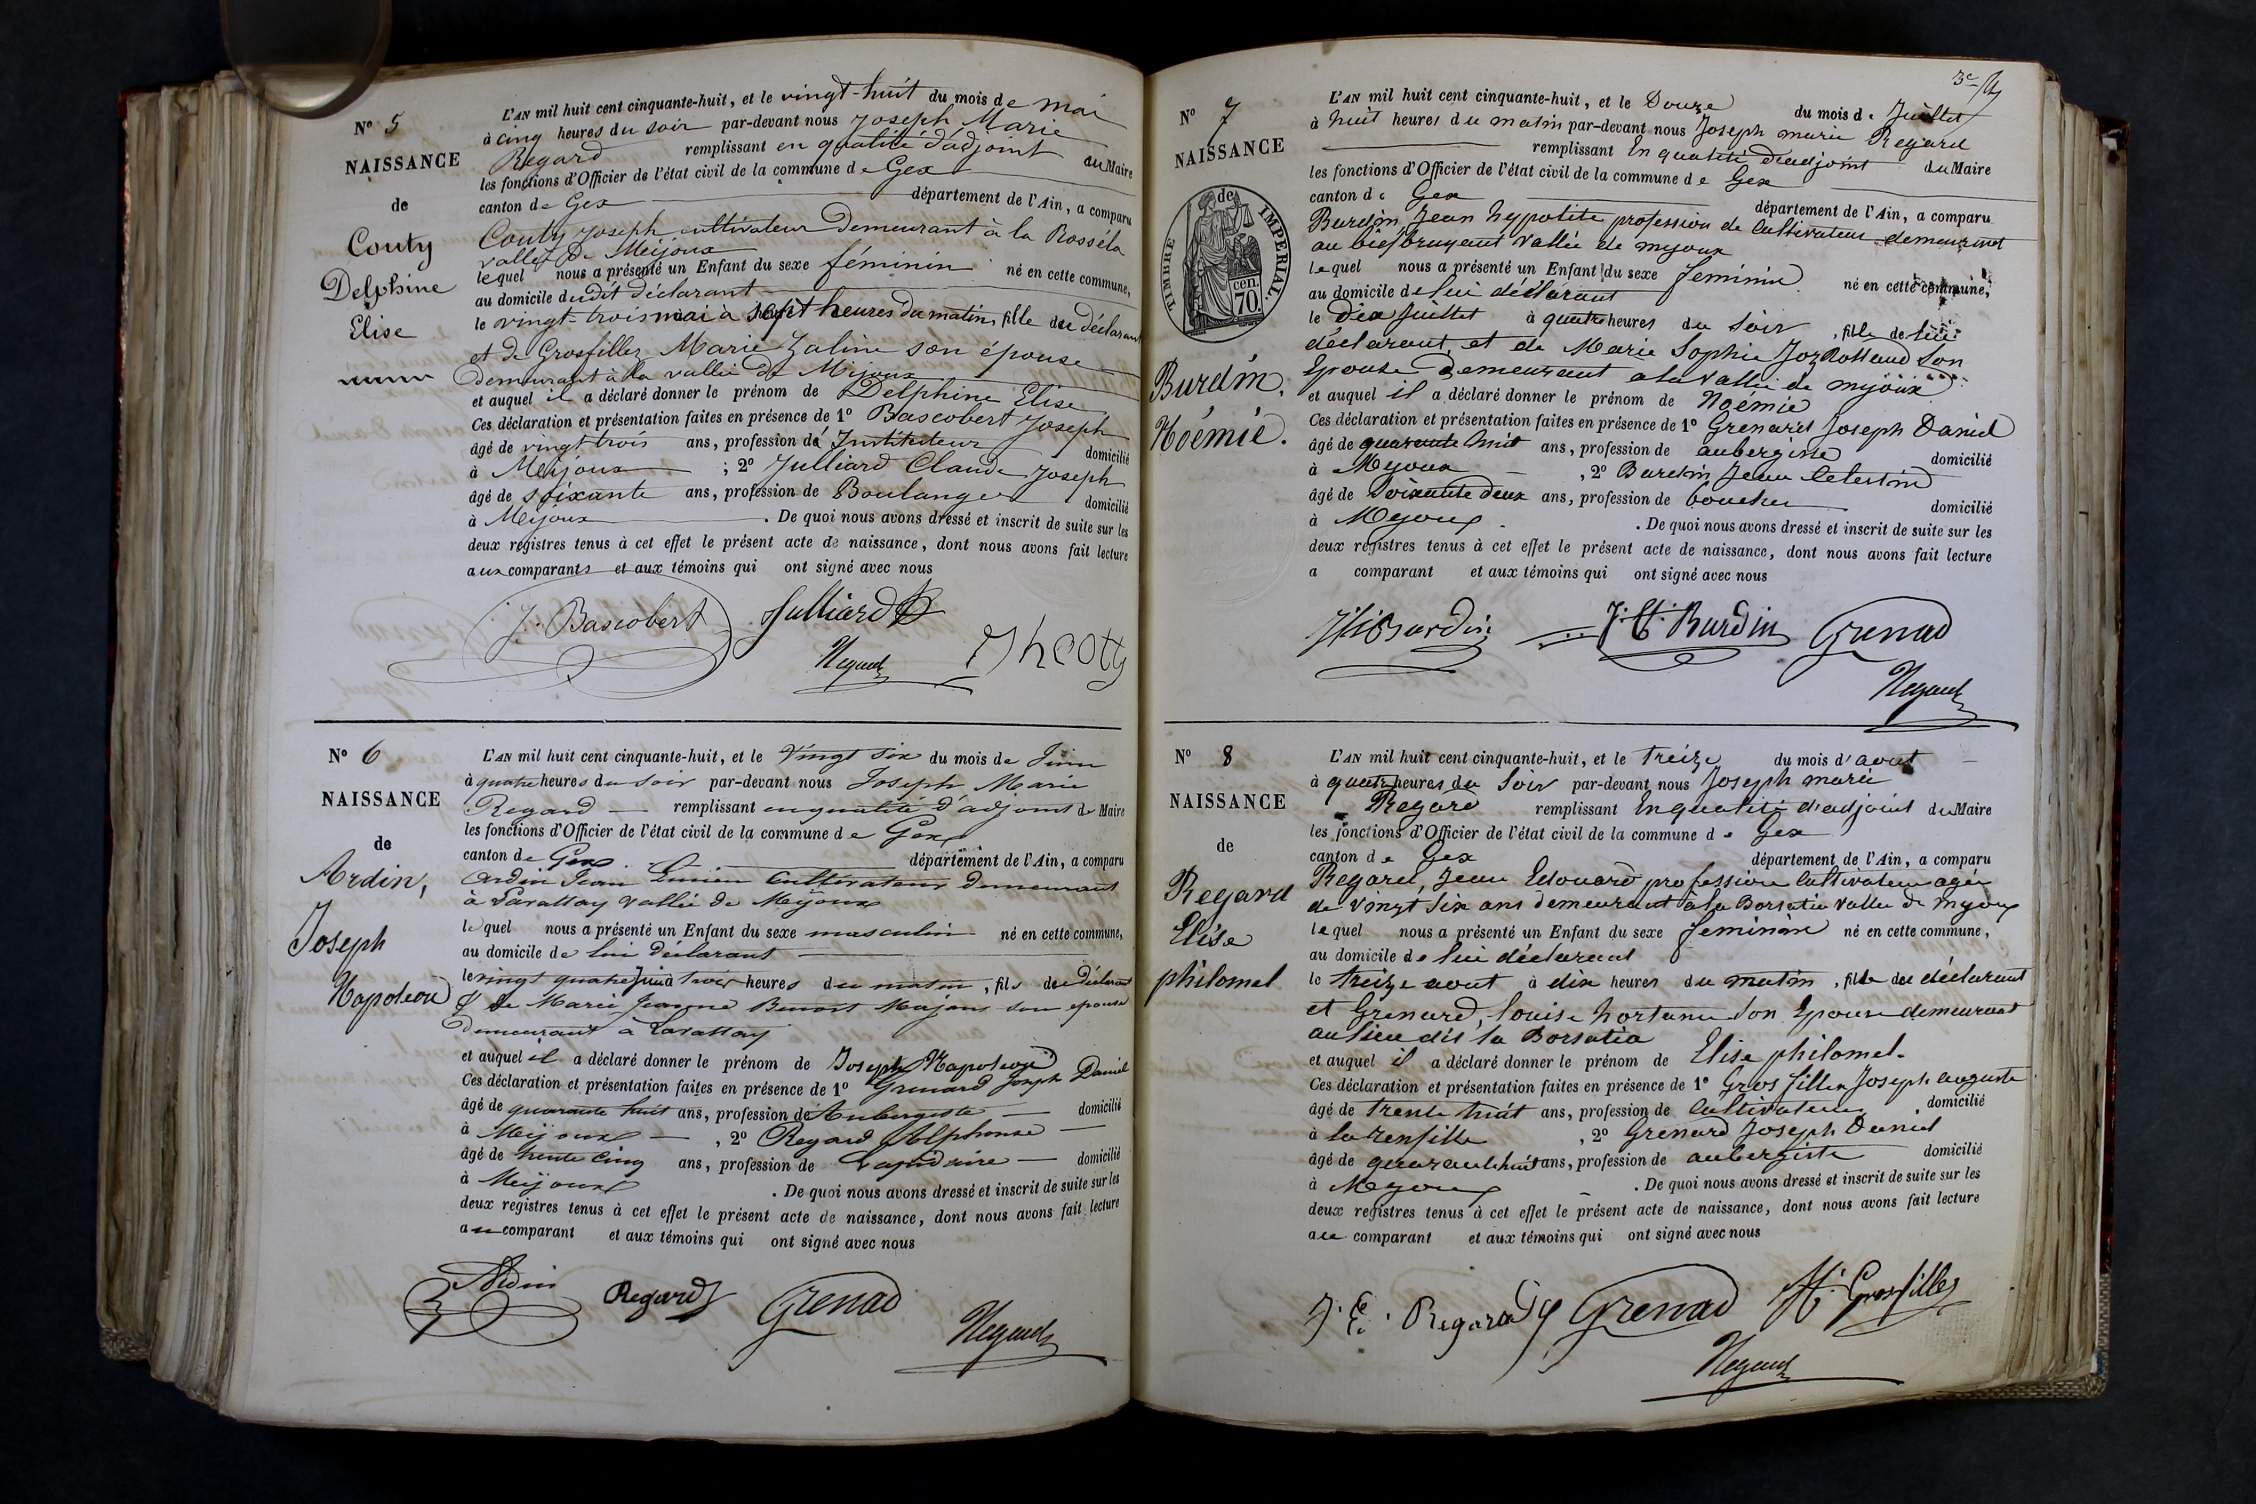 N° 5
NAISSANCE
de
Couty
Delphine
Elise
L'AN mil huit cent cinquante-huit, et le vingt-huit du mois de mai
à cinq heures du soir par-devant nous Joseph Marie
Regard remplissant en qualité d'adjoint au Maire
les fonctions d'Officier de l'état civil de la commune de Gex
canton de Gex département de l'Ain, a comparu
Couty Joseph cultivateur demeurant à la Rosséla
vallée de Meijoux
lequel nous a présenté un Enfant du sexe féminin né en cette commune,
au domicile dudit déclarant
le vingt-trois mai à sept heures du matin, fille du déclarant
et de Grosfillez Marie Zaline son épouse
demeurant à la vallée de Mijoux
et auquel il a déclaré donner le prénom de Delphine Elise
Ces déclaration et présentation faites en présence de 1° Bascobert Joseph
âgé de vingt trois ans, profession de Instituteur domicilié
à Meijoux ; 2° Julliard Claude Joseph
âgé de soixante ans, profession de Boulanger domicilié
à Meijoux . De quoi nous avons dressé et inscrit de suite sur les
deux registres tenus à cet effet le présent acte de naissance, dont nous avons fait lecture
aux comparants et aux témoins qui ont signé avec nous
J. Bascobert Julliard
Regard
N° 6
NAISSANCE
de
Ardin,
Joseph
Napoléon
L'AN mil huit cent cinquante-huit, et le vingt six du mois de Juin
à quatre heures du soir par-devant nous Joseph Marie
Regard remplissant en qualité d'adjoint du Maire
les fonctions d'Officier de l'état civil de la commune de Gex
canton de Gex département de l'Ain, a comparu
Ardin Jean Lucien cultivateur demeurant
à Lavattay vallée de Mijoux
lequel nous a présenté un Enfant du sexe masculin né en cette commune,
au domicile de lui déclarant
le vingt quatre Juin à trois heures du matin, fils du déclarant
& de Marie Jeanne Benoit Majani son epouse
demeurant à Lavattay
et auquel il a déclaré donner le prénom de Joseph Napoléon
Ces déclaration et présentation faites en présence de 1° Grenard Joseph Daniel
âgé de quarante huit ans, profession de Aubergiste domicilié
à Meijoux , 2° Regard Alphonse
âgé de trente cinq ans, profession de Lapidaire domicilié
à Meijoux . De quoi nous avons dressé et inscrit de suite sur les
deux registres tenus à cet effet le présent acte de naissance, dont nous avons fait lecture
au comparant et aux témoins qui ont signé avec nous
Ardin Regard Grenad
Regard
3e
N° 7
NAISSANCE
de
TIMBRE IMPERIAL.
70 cen.
Burdin.
Noémie.
L'AN mil huit cent cinquante-huit, et le Douze du mois de Juillet
à huit heures du matin par-devant nous Joseph marie Regard
remplissant En qualité d'adjoint du Maire
les fonctions d'Officier de l'état civil de la commune de Gex
canton de Gex département de l'Ain, a comparu
Burdin, Jean hypolite profession de Cultivateur demeurant
au bief bruyant vallée de myoux
lequel nous a présenté un Enfant du sexe feminin né en cette commune,
au domicile de lui déclarant
le Dix Juillet à quatre heures du Soir, fille de lui
déclarant, et de Marie Sophie Joz Rolland Son
Epouse Demeurant a la vallée de myoux
et auquel il a déclaré donner le prénom de Noémie
Ces déclaration et présentation faites en présence de 1° Grenard Joseph Daniel
âgé de quarante huit ans, profession de aubergiste domicilié
à Myoux , 2° Burdin Jean Celestin
âgé de Soixante deux ans, profession de boucher domicilié
à Myoux . De quoi nous avons dressé et inscrit de suite sur les
deux registres tenus à cet effet le présent acte de naissance, dont nous avons fait lecture
a comparant et aux témoins qui ont signé avec nous
JhBurdin J. C. Burdin Grenad
Regard
N° 8
NAISSANCE
de
Regard
Elise
philomel
L'AN mil huit cent cinquante-huit, et le treize du mois d'aout
à quatre heures du Soir par-devant nous Joseph marie
Regard remplissant En qualité d'adjoint du Maire
les fonctions d'Officier de l'état civil de la commune de Gex
canton de Gex département de l'Ain, a comparu
Regard, Jean Edouard profession Cultivateur agée
de vingt Six ans demeurant à la Borsatia vallée de myoux
lequel nous a présenté un Enfant du sexe feminin né en cette commune,
au domicile de lui déclarant
le treize aout à dix heures du matin, fille du déclarant
et Grenard, Louise hortanse Son Epouse demeurant
au lieu dis la Borsatia
et auquel il a déclaré donner le prénom de Elise philomel.
Ces déclaration et présentation faites en présence de 1° Gros fillex Joseph auguste
âgé de trente huit ans, profession de Cultivateur domicilié
à la renfille , 2° Grenard Joseph Daniel
âgé de quarante huit ans, profession de aubergiste domicilié
à Myoux . De quoi nous avons dressé et inscrit de suite sur les
deux registres tenus à cet effet le présent acte de naissance, dont nous avons fait lecture
au comparant et aux témoins qui ont signé avec nous
J. E. Regard Grenad Grosfillex
Regard